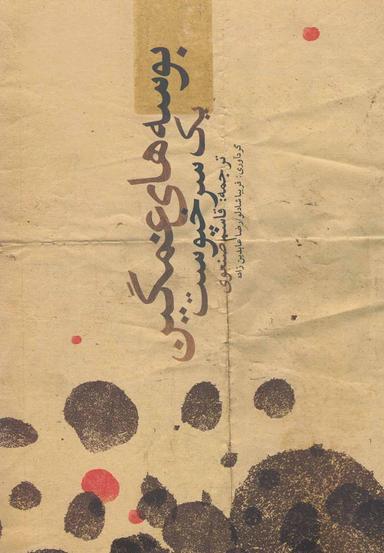 بوسه‌های غمگین
یک سرخپوست
ترجمه: قاسم صنعوی
گردآوری: فریبا شادلو / رضا عابدین زاده